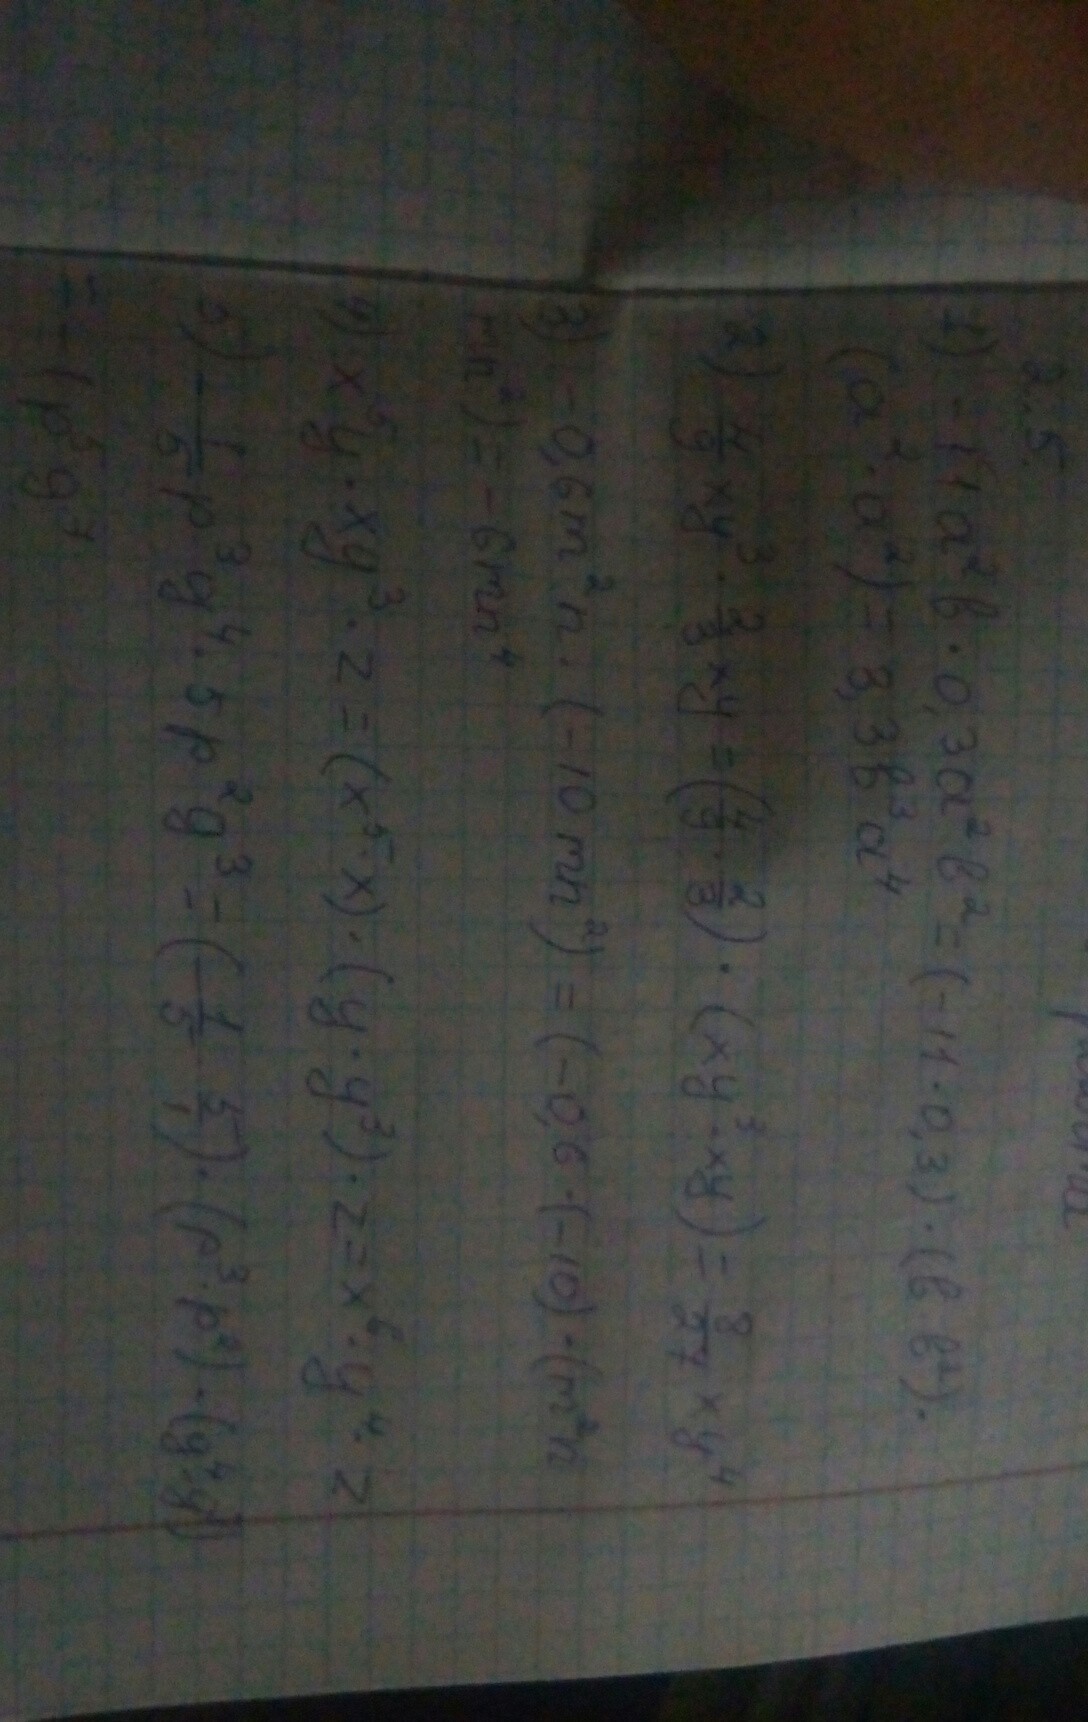 2.5.
1) - 11a²b · 0,3a²b² = (-11 · 0,3) · (b · b²) ·
(a² · a²) = 3,3b³a⁴
2) 4/9 xy³ · 2/3 xy = (4/9 · 2/3) · (xy³ · xy) = 8/27 xy⁴
3) - 0,6m²n · (-10mn²) = (-0,6 · (-10) · (m²n
mn²) = - 6mn⁴
4) x⁵y · xy³ · z = (x⁵ · x) · (y · y³) · z = x⁶ · y⁴ · z
5) - 1/5 p³g⁴ · 5p²g³ = (- 1/5 · 5/1) · (p³ · p²) · (g⁴ · g³)
= - 1p⁵g⁷